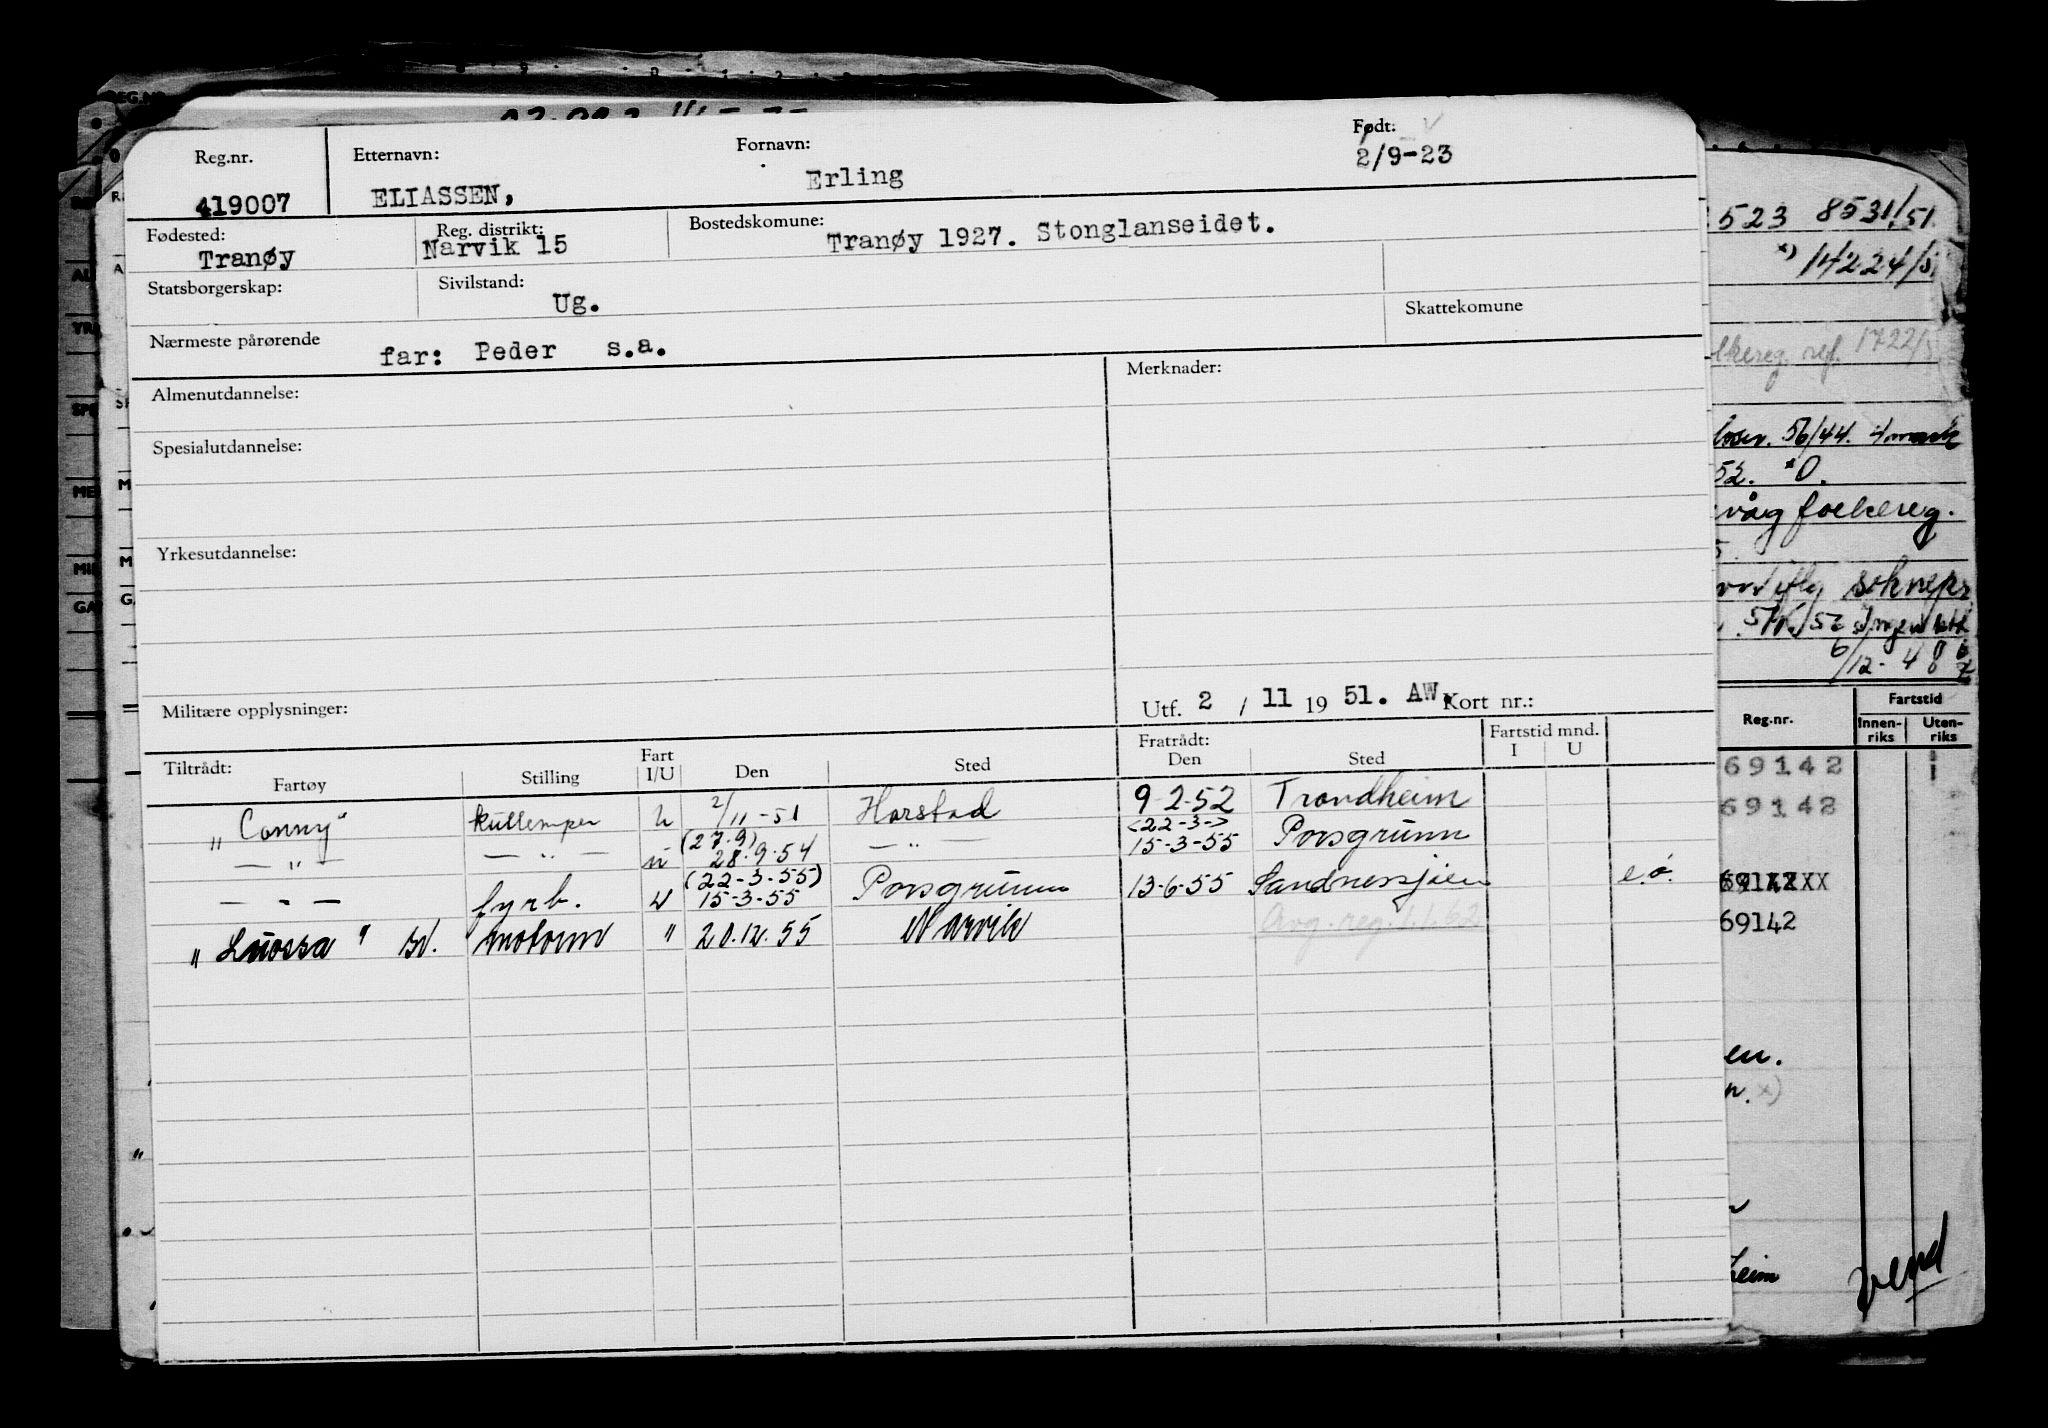 Reg.nr. Etternavn: Fornavn: Født:
419007 ELIASSEN, Erling 2/9-23
Fødested: Reg. distrikt: Bostedskomune:
Tranøy Narvik 15 Tranøy 1927. Stonglanseidet.
Statsborgerskap: Sivilstand: Ug. Skattekomune
Nærmeste pårørende far: Peder s.a.
Almenutdannelse: Merknader:
Spesialutdannelse:
Yrkesutdannelse:
Militære opplysninger: Utf. 2 / 11 19 51. AW. Kort nr.:
Tiltrådt: Fartøy Stilling Fart I/U Den Sted Fratrådt: Den Sted Fartstid mnd. I U
"Conny" kullemper u 2/11-51 Harstad 9-2-52 Trondheim
(27.9) <22-3->
— " — — " — u 28.9.54 — " — 15-3-55 Porsgrunn
(22-3-55)
— " — fyrb. u 15-3-55 Porsgrunn 13-6-55 Sandnessjøen e.ö.
"Luossa" motorm " 20.12.55 Narvik Avg. reg. 1.1.62
REG.NR.
523 8531/51.
x) 14224/51
ref. 1722/
56/44.
52. *O.
våg folkereg.
6/12-48
Reg.nr. Fartstid
Innen-riks Uten-riks
69142
69142
69142
en.
n. x)
heim
vend